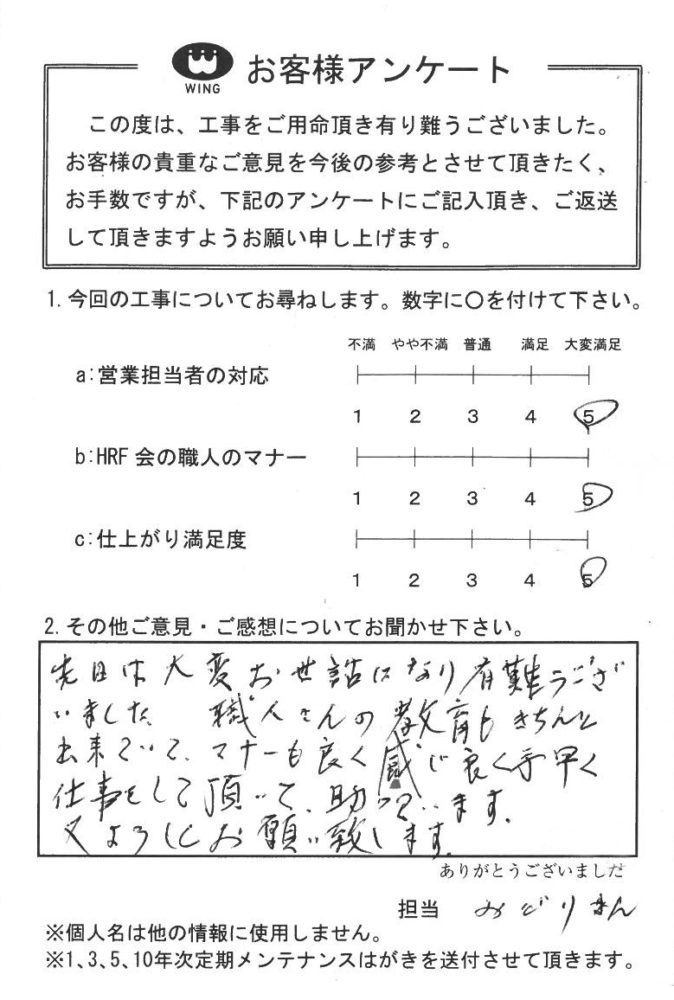 WING
お客様アンケート
この度は、工事をご用命頂き有り難うございました。
お客様の貴重なご意見を今後の参考とさせて頂きたく、
お手数ですが、下記のアンケートにご記入頂き、ご返送
して頂きますようお願い申し上げます。
1. 今回の工事についてお尋ねします。数字に〇を付けて下さい。
不満 やや不満 普通 満足 大変満足
a:営業担当者の対応
1 2 3 4 5
b:HRF 会の職人のマナー
1 2 3 4 5
c:仕上がり満足度
1 2 3 4 5
2. その他ご意見・ご感想についてお聞かせ下さい。
先日は大変お世話になり有難うござ
いました 職人さんの教育もきちんと
出来ていて、マナーも良く感じ良く手早く
仕事をして頂いて、助っています。
又よろしくお願い致します。
ありがとうございました
担当 みどりさん
※個人名は他の情報に使用しません。
※1、3、5、10年次定期メンテナンスはがきを送付させて頂きます。